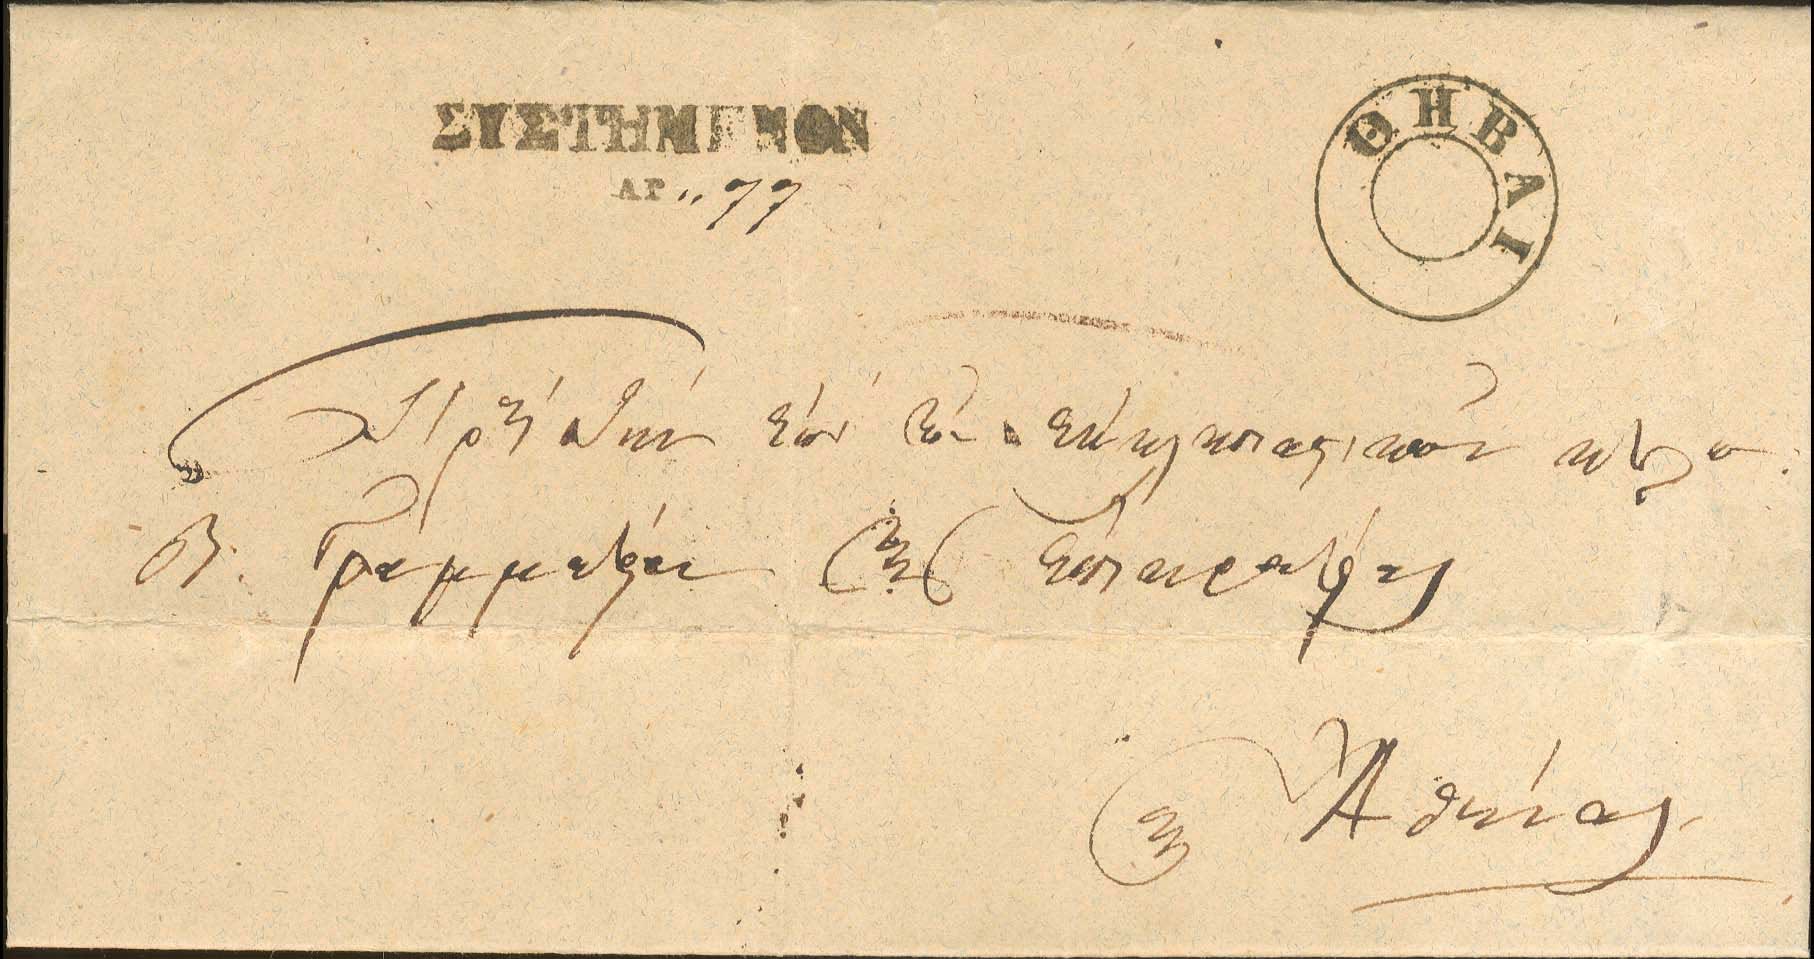 ΣΥΣΤΗΜΕΝΟΝ
ΘΗΒΑΙ
ΑΡ 77
Πρὸς τὴν ἐπὶ τῶν Ἐκκλησιαστικῶν
Β. Γραμματείαν τῆς Ἐπικρατείας
Ἀθήνας